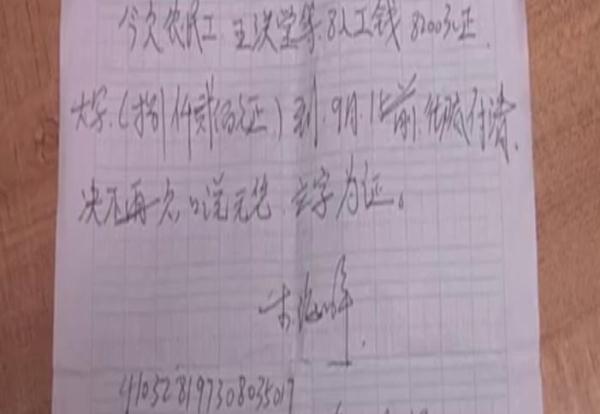 今欠农民工 王洪堂等8人工钱 8200元正
大字(捌仟贰佰元正)到9月15前彻底付清,
决不再欠,口说无凭 立字为证。
410328197308035017